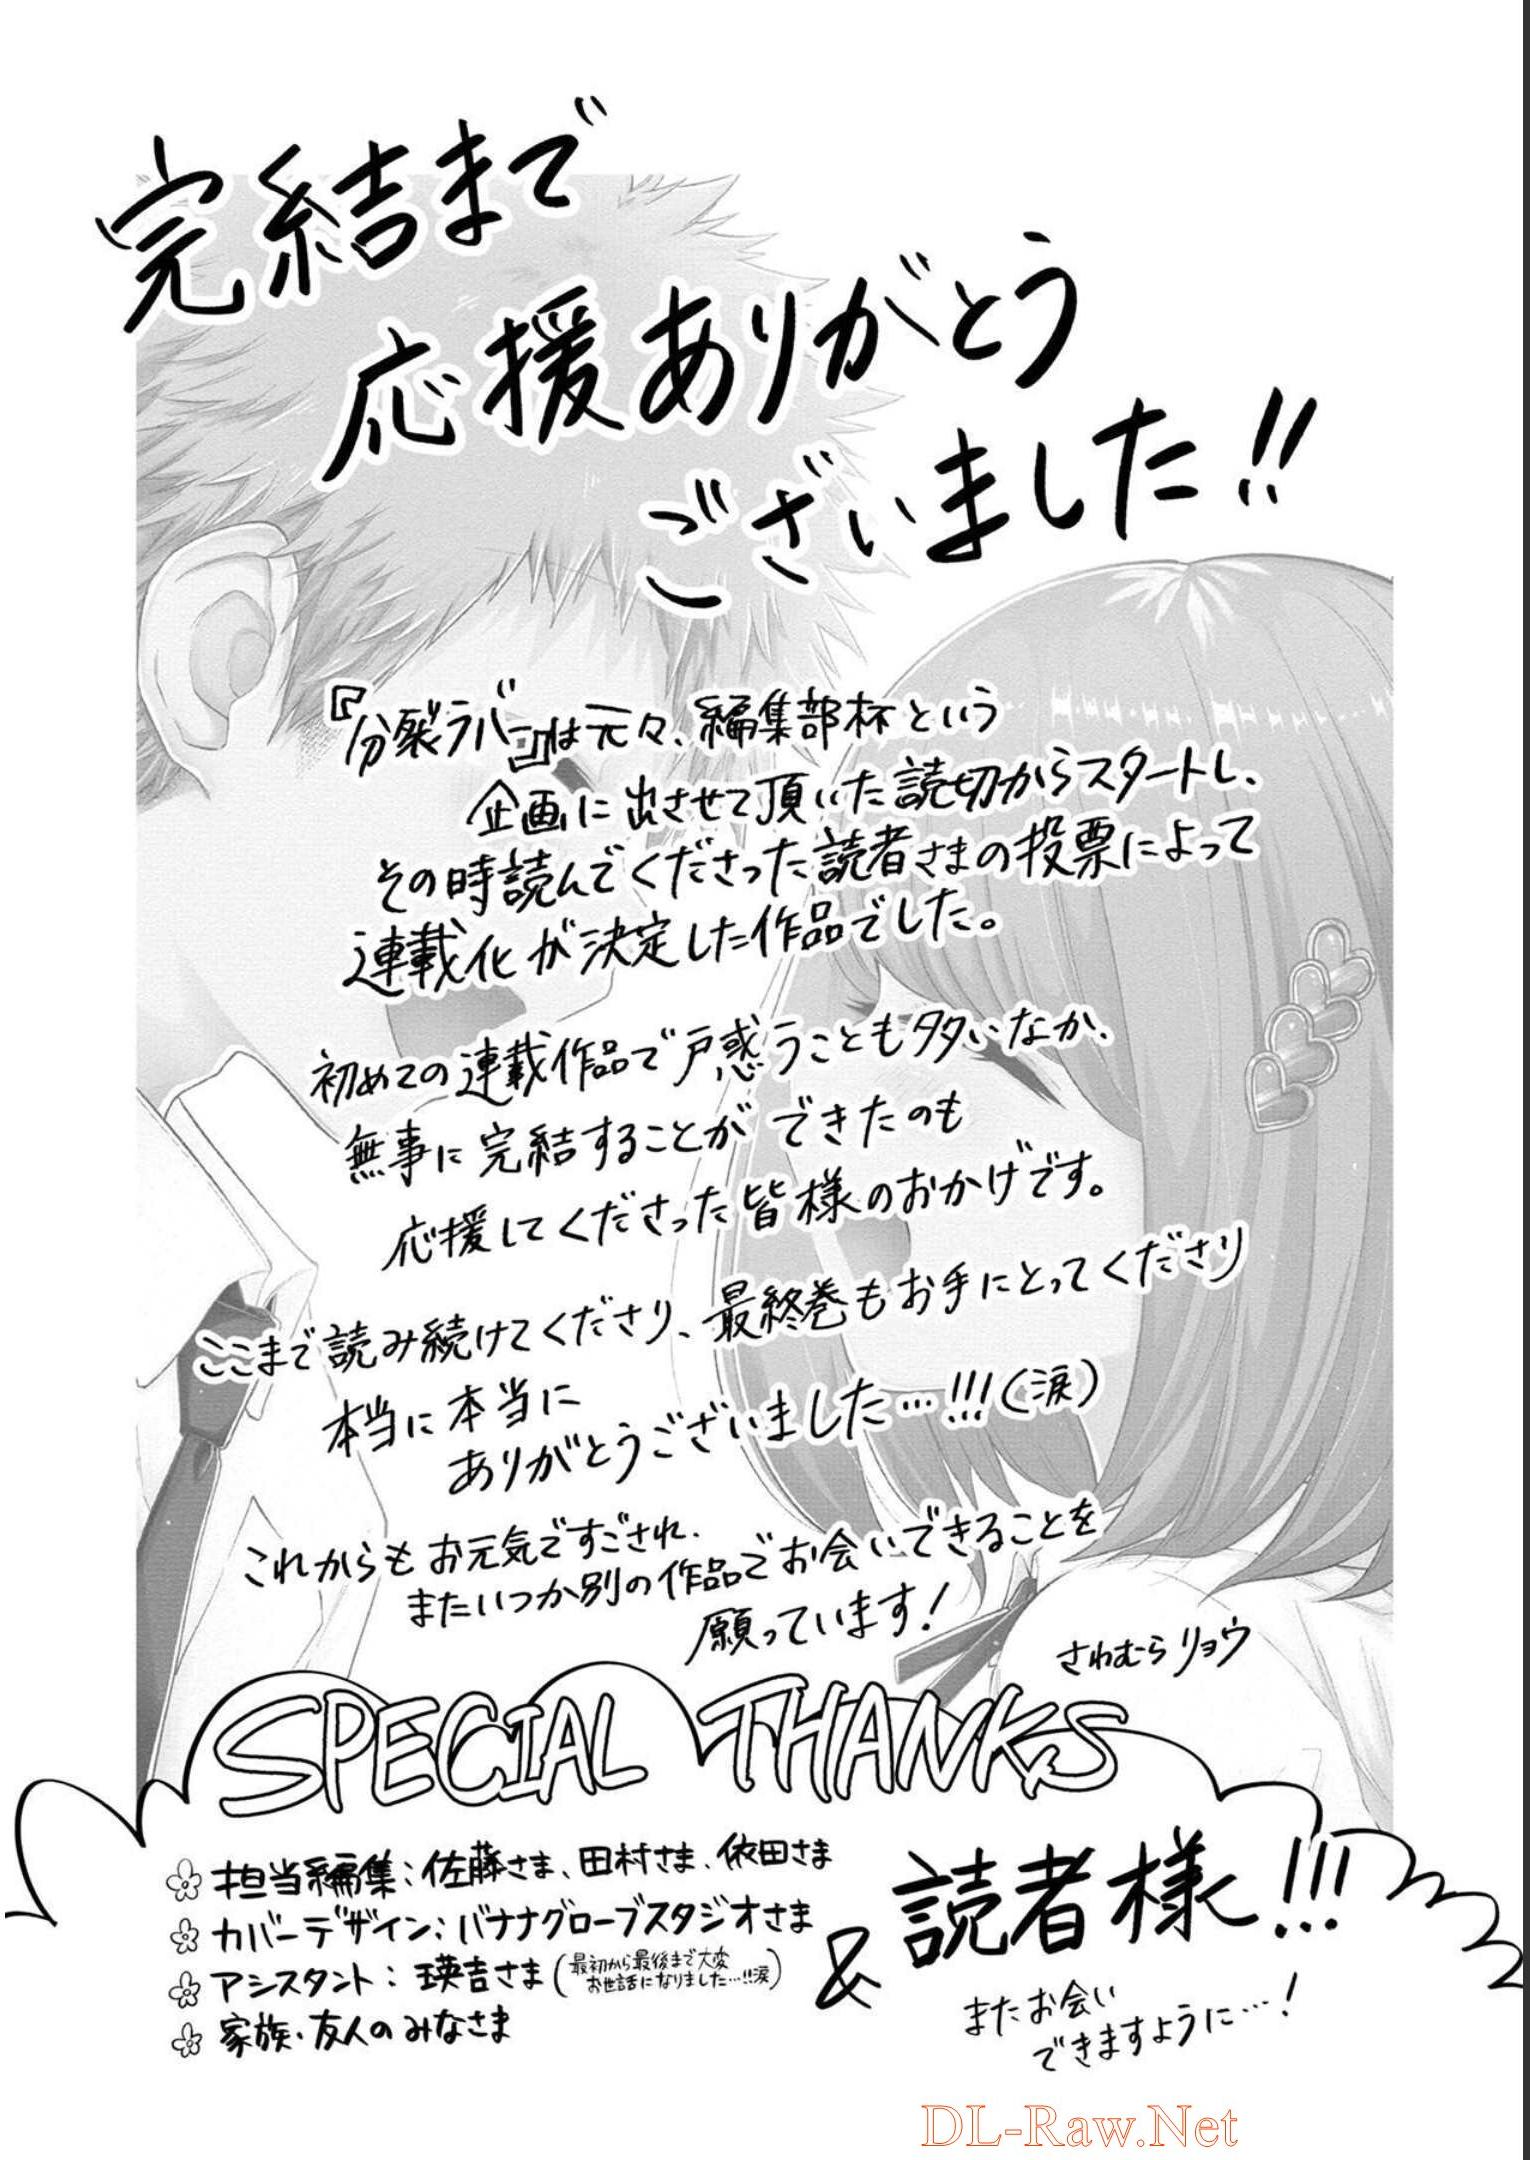 完結まで
応援ありがとう
ございました!!
『分裂ラバー』は元々、編集部杯という
企画に出させて頂いた読切からスタートし、
その時読んでくださった読者さまの投票によって
連載化が決定した作品でした。
初めての連載作品で戸惑うことも多いなか、
無事に完結することができたのも
応援してくださった皆様のおかげです。
ここまで読み続けてくださり、最終巻もお手にとってくださり
本当に本当に
ありがとうございました…!!!(涙)
これからもお元気ですごされ、
またいつか別の作品でお会いできることを
願っています!
さわむらリョウ
SPECIAL THANKS
担当編集:佐藤さま、田村さま、依田さま
カバーデザイン:バナナグローブスタジオさま
アシスタント:瑛吉さま(最初から最後まで大変
お世話になりました…!!涙)
家族・友人のみなさま
& 読者様!!!
またお会い
できますように…!
DL-Raw.Net